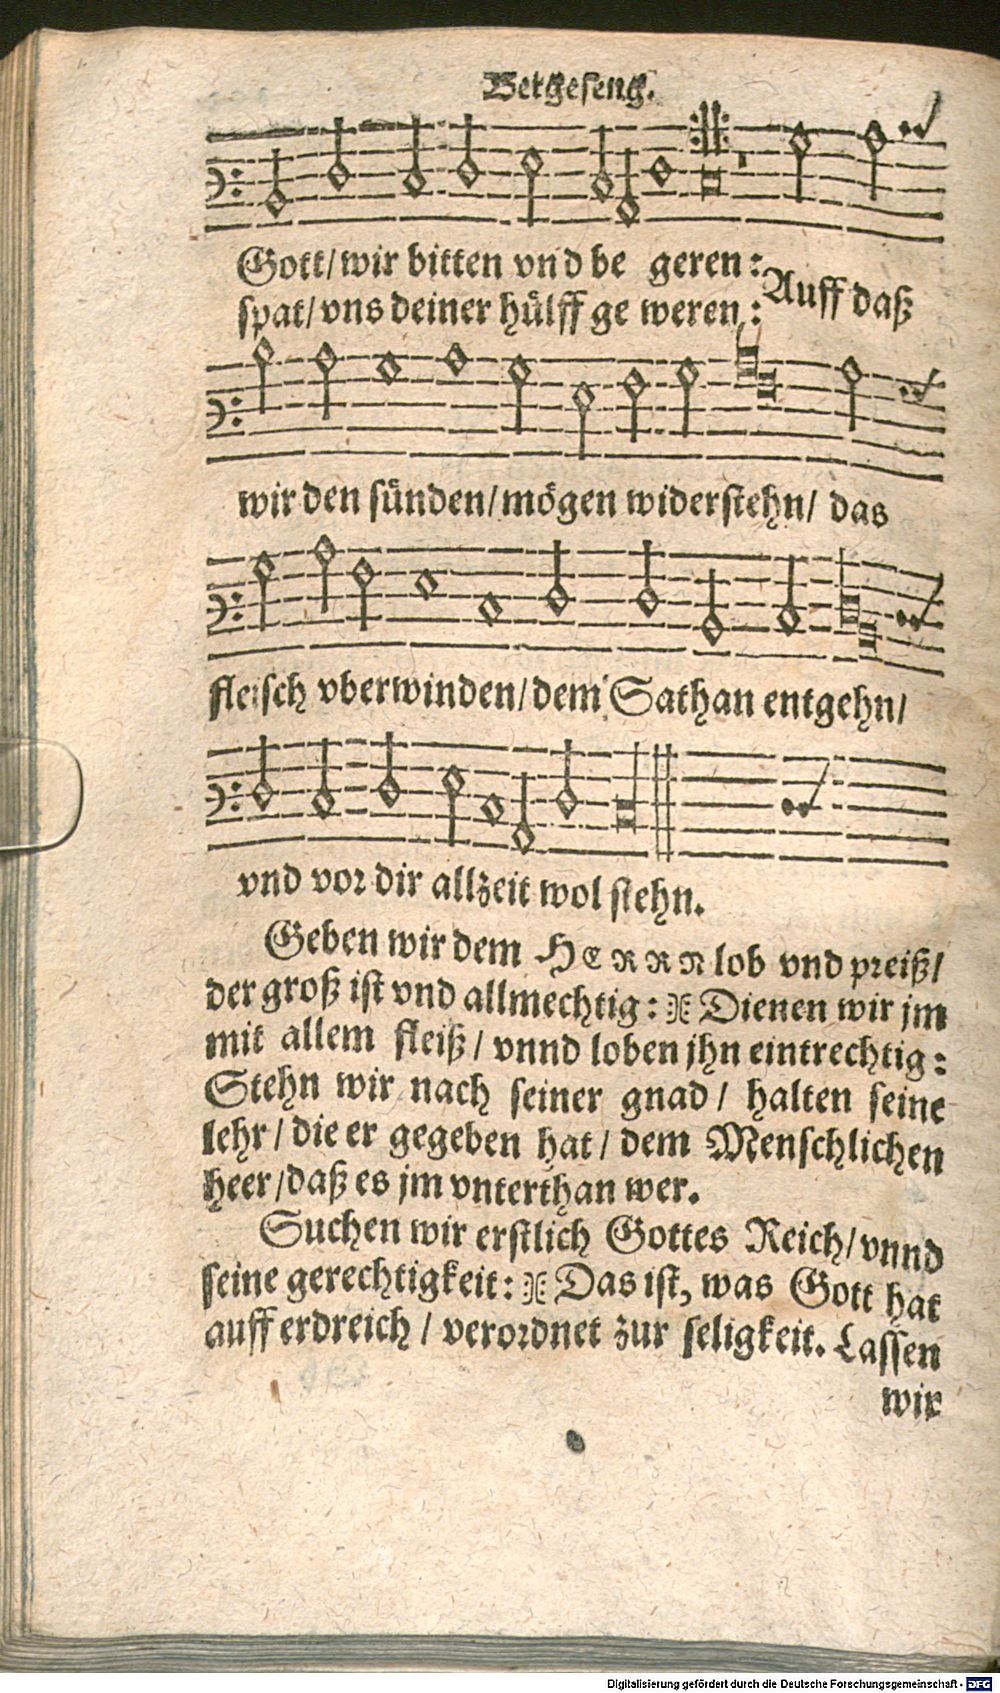 Betgeseng.
Gott/wir bitten vnd be geren:
spat/vns deiner hülff ge weren: Auff daß
wir den sünden/mögen widerstehn/ das
fleisch vberwinden/dem Sathan entgehn/
vnd vor dir allzeit wol stehn.
Geben wir dem HERRN lob vnd preiß/
der groß ist vnd allmechtig: Dienen wir jm
mit allem fleiß/ vnnd loben jhn eintrechtig:
Stehn wir nach seiner gnad/ halten seine
lehr/die er gegeben hat/ dem Menschlichen
heer/daß es jm vnterthan wer.
Suchen wir erstlich Gottes Reich/vnnd
seine gerechtigkeit: Das ist, was Gott hat
auff erdreich/ verordnet zur seligkeit. Lassen
wir
Digitalisierung gefördert durch die Deutsche Forschungsgemeinschaft - DFG